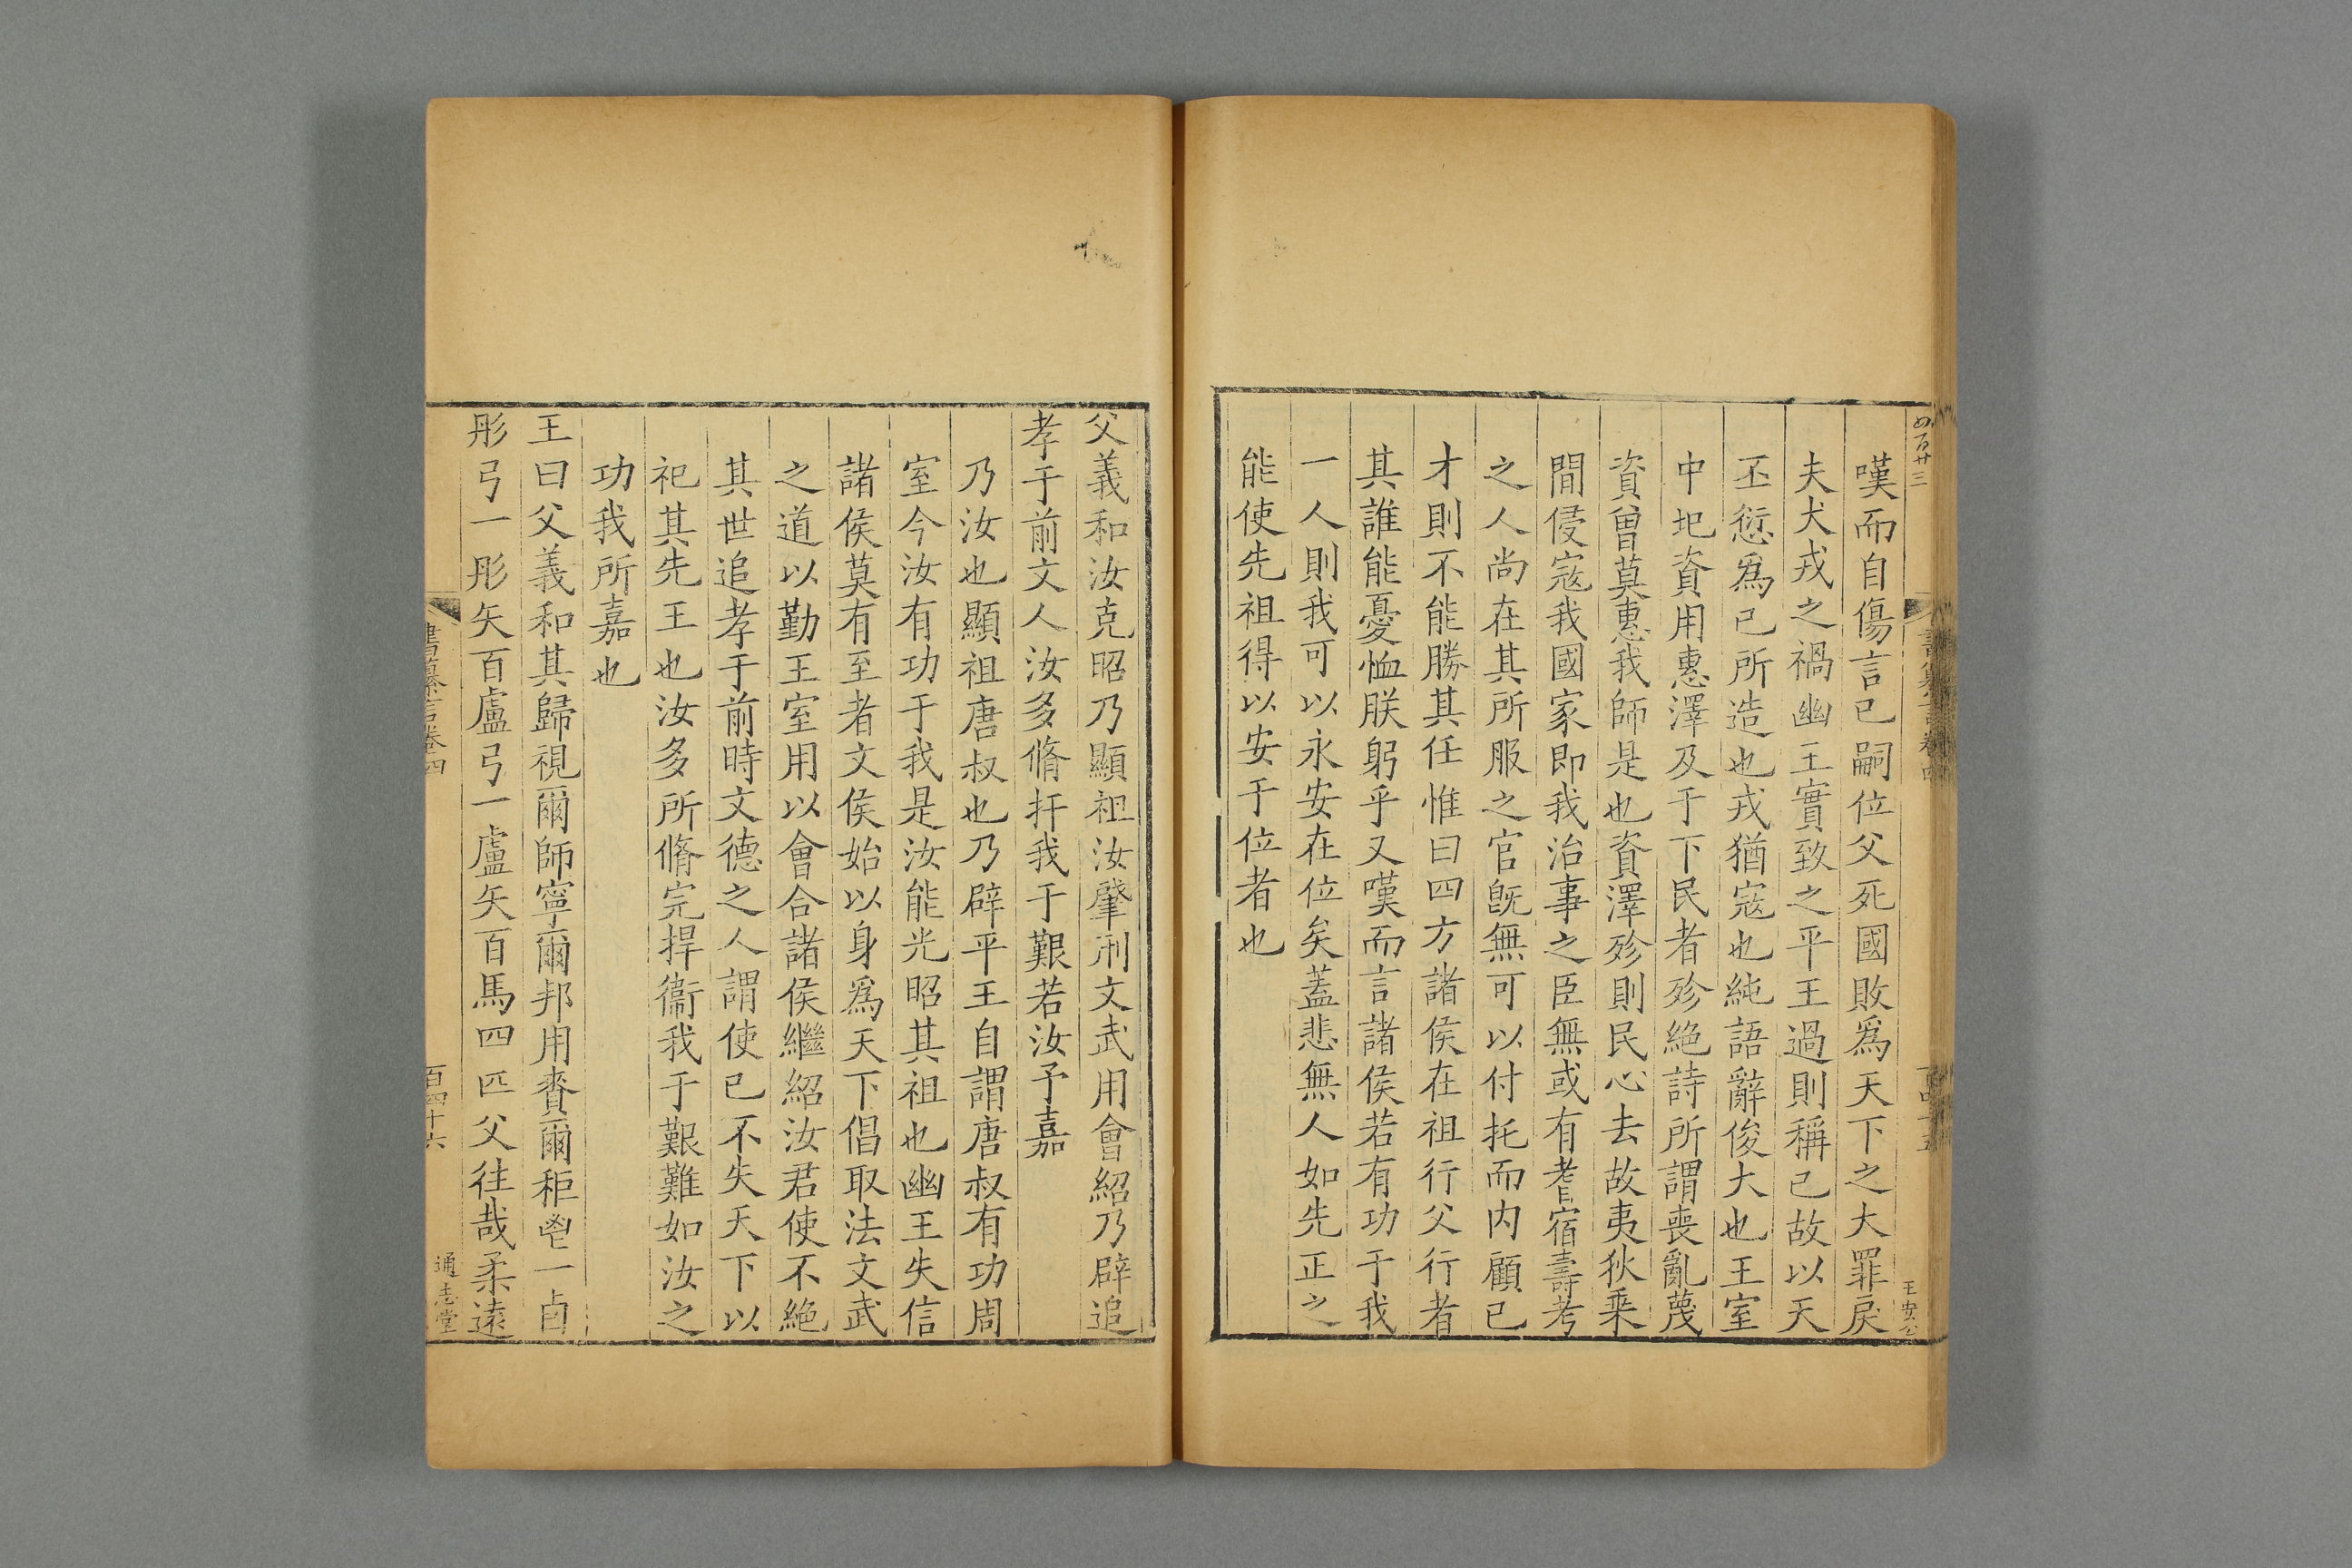 嘆而自傷言己嗣位父死國敗爲天下之大罪戾
夫犬戎之禍幽王實致之平王過則稱己故以天
丕愆爲己所造也戎猶寇也純語辭俊大也王室
中圯資用惠澤及于下民者殄絶詩所謂喪亂蔑
資曾莫惠我師是也資澤殄則民心去故夷狄乗
間侵寇我國家即我治事之臣無或有耆宿壽考
之人尚在其所服之官旣無可以付托而内顧己
才則不能勝其任惟曰四方諸侯在祖行父行者
其誰能憂恤朕躬乎又嘆而言諸侯若有功于我
一人則我可以永安在位矣蓋悲無人如先正之
能使先祖得以安于位者也
父義和汝克昭乃顯祖汝肇刑文武用會紹乃辟追
孝于前文人汝多脩扞我于艱若汝予嘉
乃汝也顯祖唐叔也乃辟平王自謂唐叔有功周
室今汝有功于我是汝能光昭其祖也幽王失信
諸侯莫有至者文侯始以身爲天下倡取法文武
之道以勤王室用以會合諸侯繼紹汝君使不絶
其世追孝于前時文德之人謂使己不失天下以
祀其先王也汝多所脩完捍衞我于艱難如汝之
功我所嘉也
王曰父義和其歸視爾師寧爾邦用賚爾秬鬯一卣
彤弓一彤矢百盧弓一盧矢百馬四匹父往哉柔遠
書纂言卷四
百四十六
通志堂